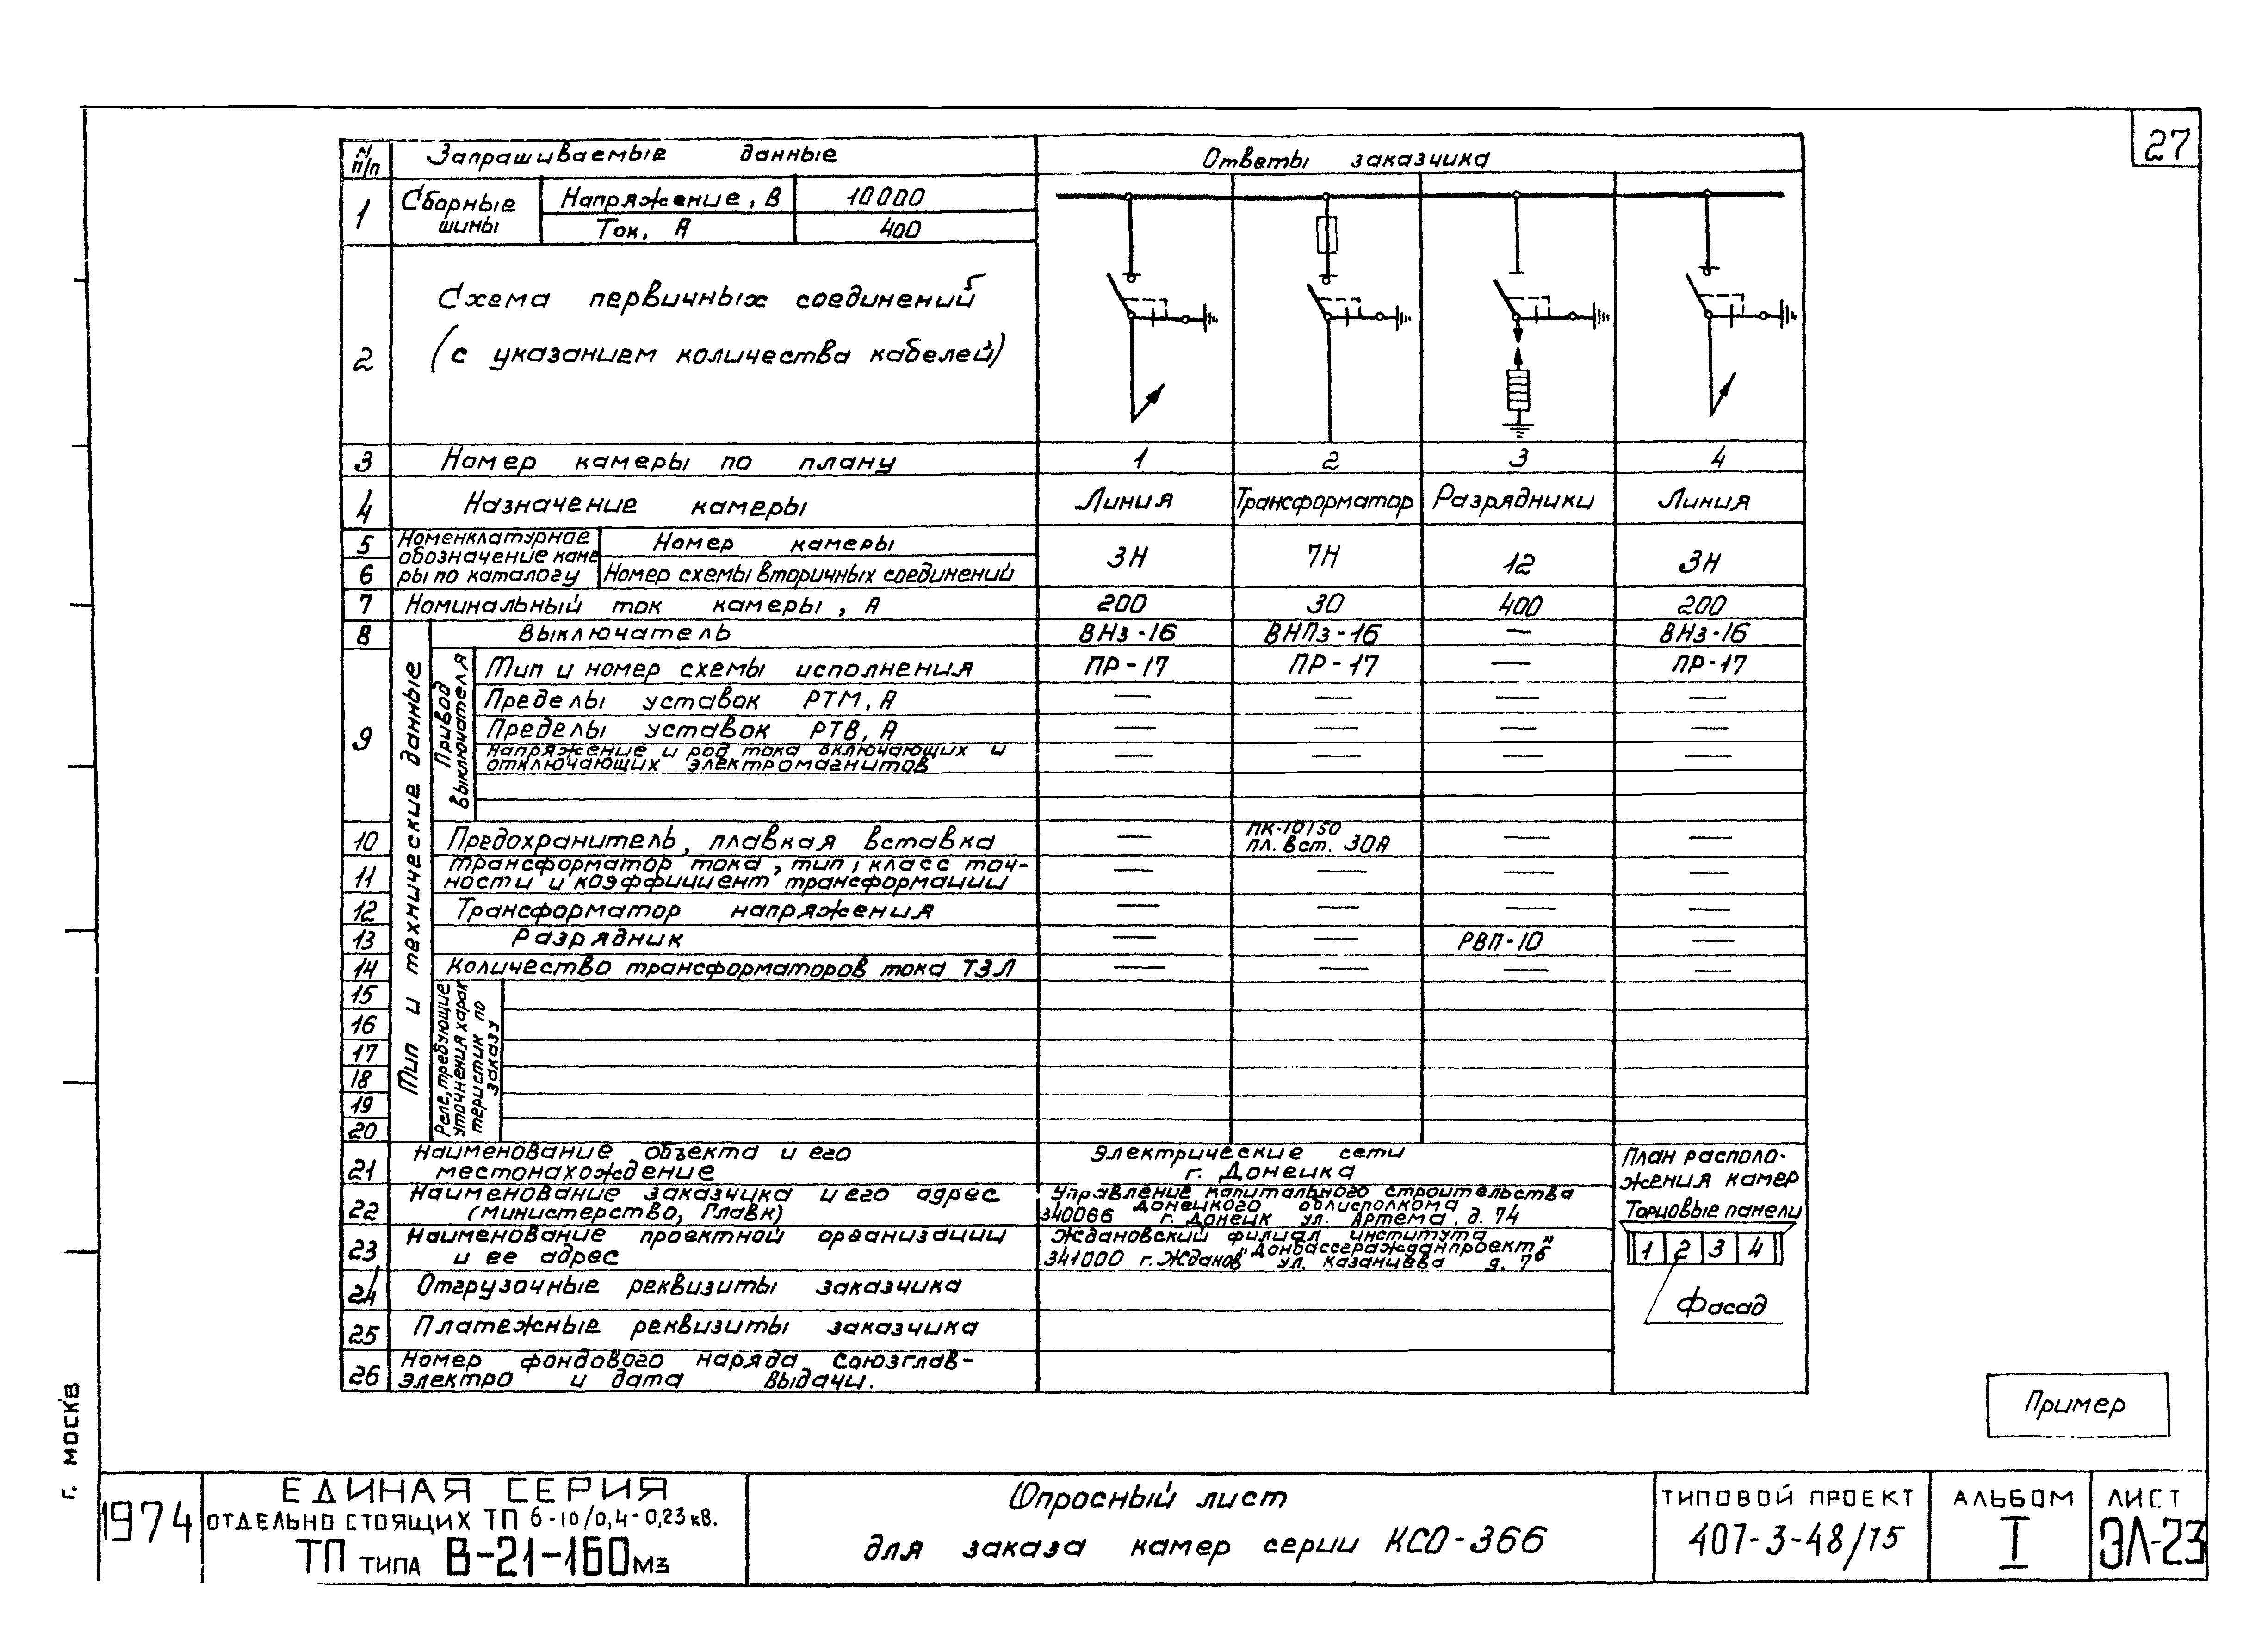 27
N п/п Запрашиваемые данные Ответы заказчика
1 Сборные шины Напряжение, В 10000
Ток, А 400
2 Схема первичных соединений
(с указанием количества кабелей)
3 Номер камеры по плану 1 2 3 4
4 Назначение камеры Линия Трансформатор Разрядники Линия
Номенклатурное обозначение каме ры по каталогу
5 Номер камеры 3Н 7Н 12 3Н
6 Номер схемы вторичных соединений
7 Номинальный ток камеры, А 200 30 400 200
Тип и технические данные
8 Выключатель ВНз-16 ВНПз-16 — ВНз-16
9 Привод выключателя
Тип и номер схемы исполнения ПР-17 ПР-17 — ПР-17
Пределы уставок РТМ, А — — — —
Пределы уставок РТВ, А — — — —
Напряжение и род тока включающих и
отключающих электромагнитов — — — —
10 Предохранитель, плавкая вставка — ПК-10/50 пл. вст. 30А — —
11 Трансформатор тока, тип, класс точ-
ности и коэффициент трансформации — — — —
12 Трансформатор напряжения — — — —
13 Разрядник — — РВП-10 —
14 Количество трансформаторов тока ТЗЛ — — — —
Реле, требующие уточнения харак теристик по заказу
15
16
17
18
19
20
21 Наименование объекта и его
местонахождение
Электрические сети
г. Донецка
22 Наименование заказчика и его адрес
(министерство, Главк)
Управление капитального строительства
Донецкого облисполкома
340066 г. Донецк ул. Артема, д. 74
23 Наименование проектной организации
и ее адрес
Ждановский филиал института
"Донбассгражданпроект"
341000 г. Жданов ул. Казанцева д. 7б
24 Отгрузочные реквизиты заказчика
25 Платежные реквизиты заказчика
26 Номер фондового наряда Союзглав-
электро и дата выдачи.
План располо-
жения камер
Торцовые панели
1 2 3 4
Фасад
Пример
г. Москв
1974
ЕДИНАЯ СЕРИЯ
ОТДЕЛЬНО СТОЯЩИХ ТП 6-10/0,4-0,23 кв.
ТП ТИПА В-21-160 мз
Опросный лист
для заказа камер серии КСО-366
ТИПОВОЙ ПРОЕКТ
407-3-48/75
АЛЬБОМ
I
ЛИСТ
ЭЛ-23